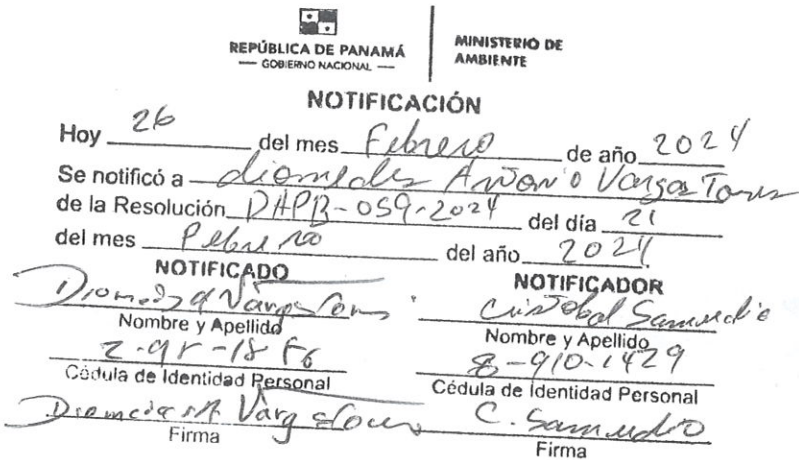 REPÚBLICA DE PANAMÁ
— GOBIERNO NACIONAL —
MINISTERIO DE
AMBIENTE
NOTIFICACIÓN
Hoy 26 del mes Febrero de año 2024
Se notificó a diomedes Antonio Vargas Torres
de la Resolución DAPB-059-2024 del día 21
del mes Febrero del año 2024
NOTIFICADO
Diomedes A Vargas Torres
Nombre y Apellido
Cédula de Identidad Personal
Diomedes A Vargas Torres
Firma
NOTIFICADOR
Cristobal Samudio
Nombre y Apellido
8-910-1429
Cédula de Identidad Personal
C. Samudio
Firma